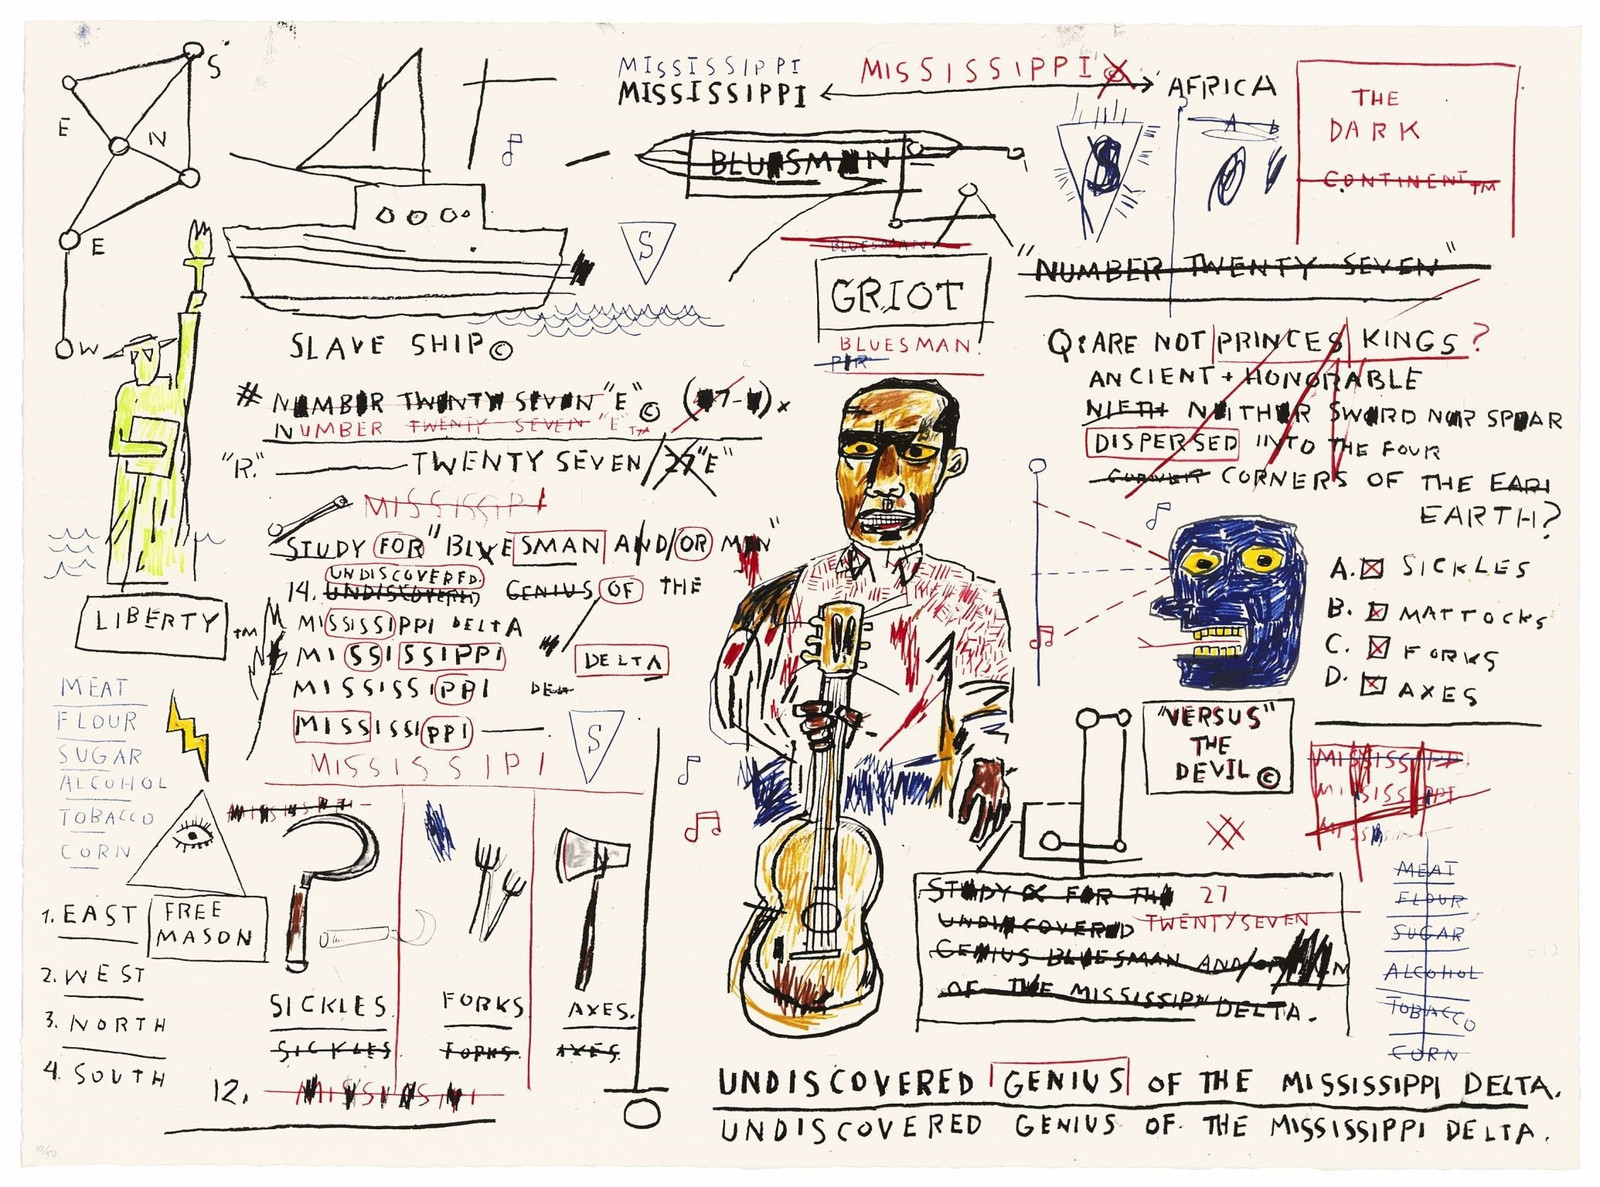 S
E
N
E
W
MISSISSIPPI
MISSISSIPPI
MISSISSIPPI
AFRICA
BLUESMAN
S
S
A B
THE
DARK
CONTINENT TM
BLUESMAN
GRIOT
BLUESMAN.
"NUMBER TWENTY SEVEN"
SLAVE SHIP ©
# NUMBER TWENTY SEVEN "E" ©
NUMBER TWENTY SEVEN "E" TM
"R." TWENTY SEVEN/27"E"
MISSISSIPI
STUDY FOR "BLUESMAN AND/OR MAN"
UNDISCOVERED.
14. UNDISCOVERED GENIUS OF THE
MISSISSIPPI DELTA
MISSISSIPPI
DELTA
MISSISSIPPI
MISSISSIPPI
S
MISSISSIPI
LIBERTY TM
MEAT
FLOUR
SUGAR
ALCOHOL
TOBACCO
CORN
FREE
MASON
1. EAST
2. WEST
3. NORTH
4. SOUTH
SICKLES
SICKLES
FORKS
FORKS
AXES.
AXES.
12.
Q: ARE NOT PRINCES KINGS?
ANCIENT + HONORABLE
NIETH NEITHER SWORD NOR SPEAR
DISPERSED INTO THE FOUR
CORNERS OF THE EARI
EARTH?
A. SICKLES
B. MATTOCKS
C. FORKS
D. AXES
"VERSUS"
THE
DEVIL ©
MISSISSIPPI
MISSISSIPPI
MEAT
FLOUR
SUGAR
ALCOHOL
TOBACCO
CORN
STUDY FOR THE 27
UNDISCOVERED TWENTYSEVEN
GENIUS BLUESMAN AND/OR
OF THE MISSISSIPPI DELTA.
UNDISCOVERED GENIUS OF THE MISSISSIPPI DELTA.
UNDISCOVERED GENIUS OF THE MISSISSIPPI DELTA.
10/50